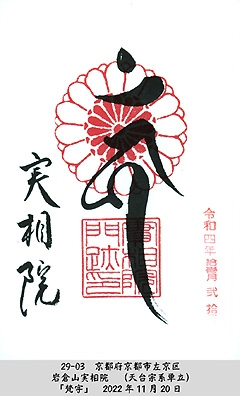 実相院
實相院
門跡
令和四年拾壱月弐拾
29-03 京都府京都市左京区
岩倉山実相院 (天台宗系単立)
「梵字」 2022年11月20日